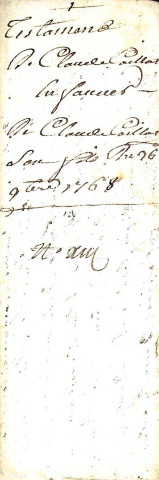 Testament
De Claude Caillot
En faveur
De Claude Caillot
Son fils Du 26
9bre 1768
N.o XIII